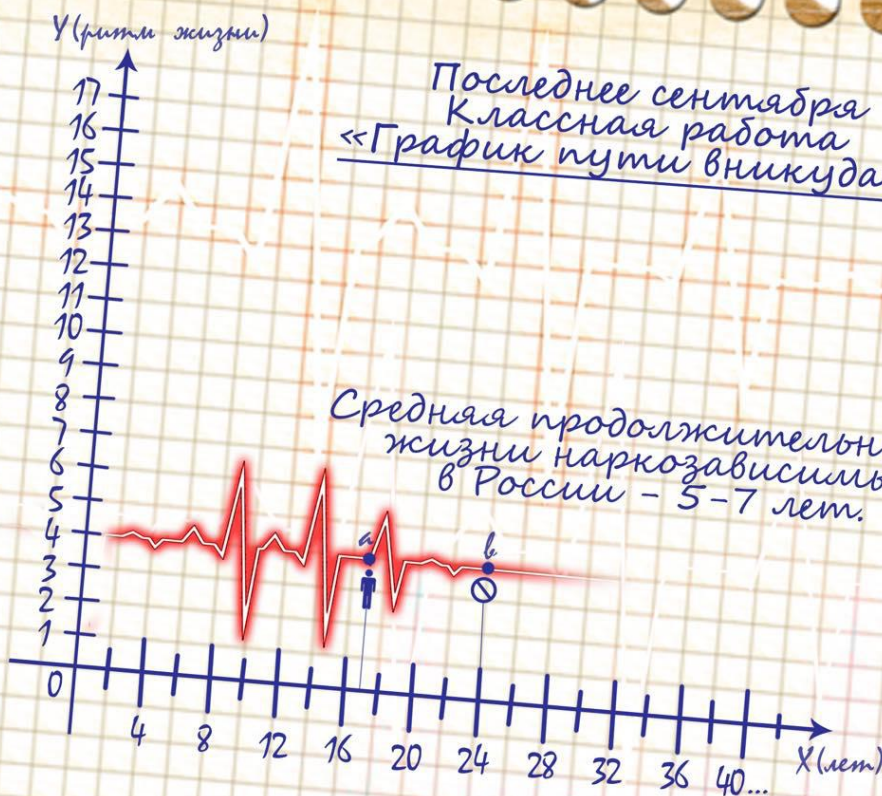 Y(ритм жизни)
Последнее сентября
Классная работа
«График пути вникуда
17
16
15
14
13
12
11
10
9
8
7
6
5
4
3
2
1
0
Средняя продолжительн
жизни наркозависимы
в России - 5-7 лет.
a
b
4 8 12 16 20 24 28 32 36 40...
X(лет)